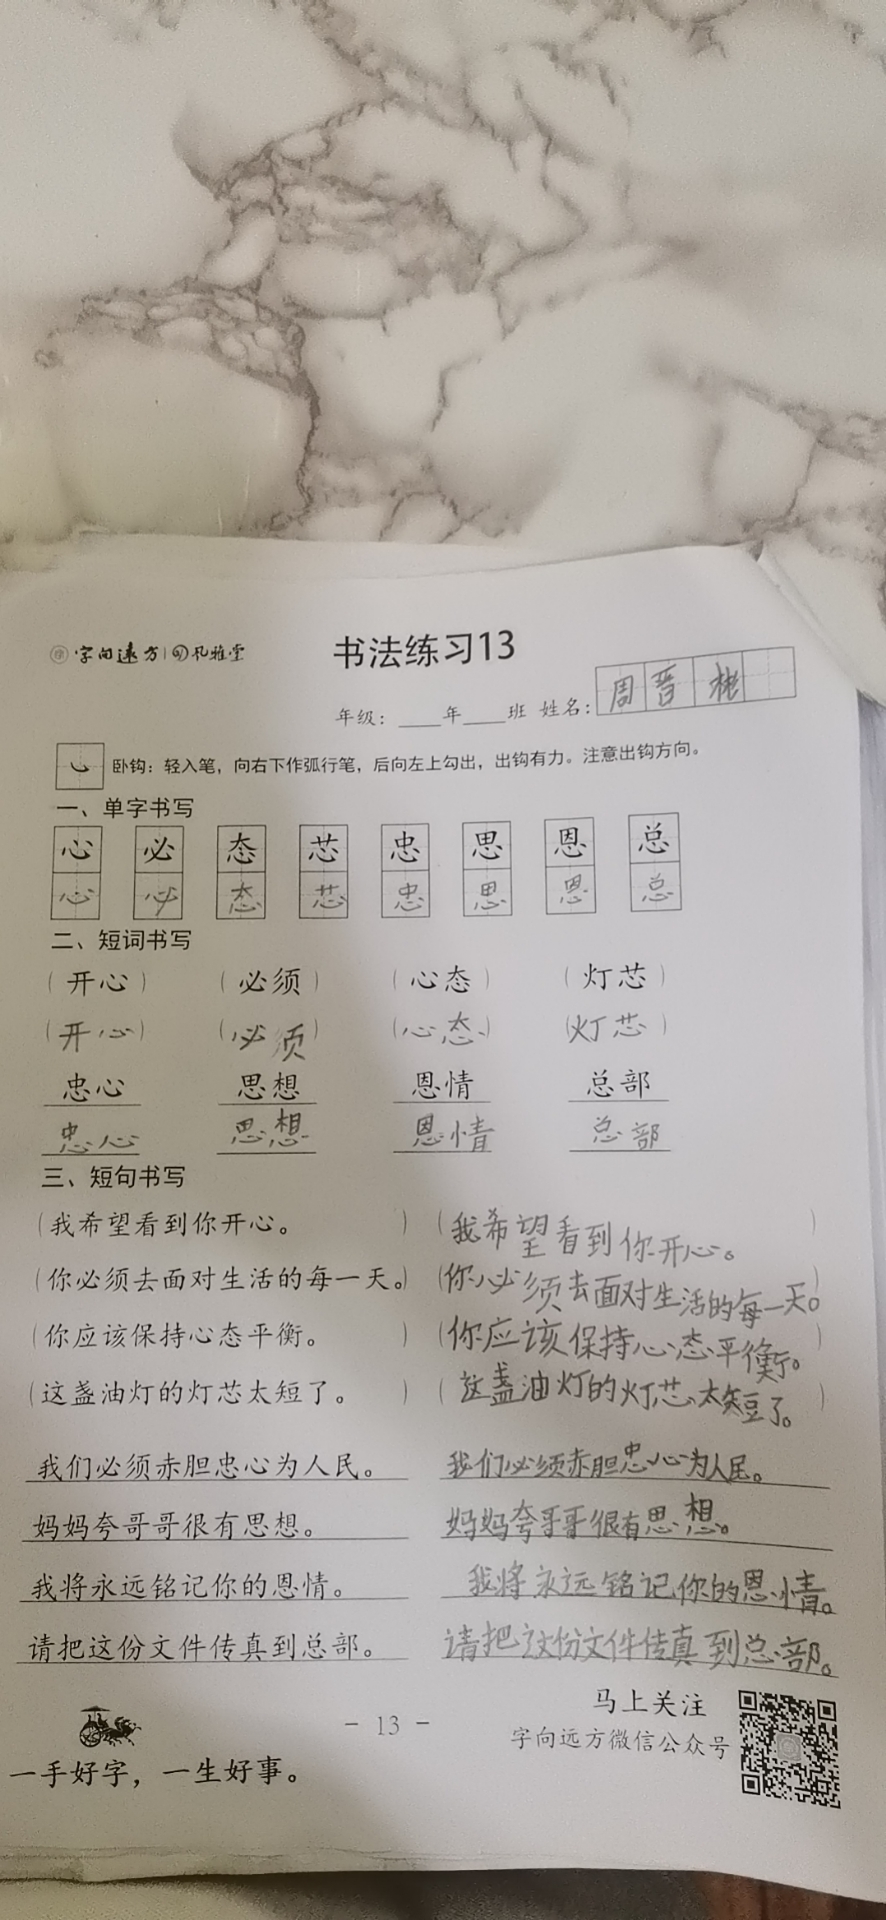 字向远方 孔雅堂
书法练习13
年级：____年____班 姓名：周晋彬
卧钩：轻入笔，向右下作弧行笔，后向左上勾出，出钩有力。注意出钩方向。
一、单字书写
心 必 态 芯 忠 思 恩 总
心 必 态 芯 忠 思 恩 总
二、短词书写
（开心） （必须） （心态） （灯芯）
（开心） （必须） （心态） （灯芯）
忠心 思想 恩情 总部
忠心 思想 恩情 总部
三、短句书写
（我希望看到你开心。） （我希望看到你开心。）
（你必须去面对生活的每一天。） （你必须去面对生活的每一天。）
（你应该保持心态平衡。） （你应该保持心态平衡。）
（这盏油灯的灯芯太短了。） （这盏油灯的灯芯太短了。）
我们必须赤胆忠心为人民。 我们必须赤胆忠心为人民。
妈妈夸哥哥很有思想。 妈妈夸哥哥很有思想。
我将永远铭记你的恩情。 我将永远铭记你的恩情。
请把这份文件传真到总部。 请把这份文件传真到总部。
马上关注
－ 13 －
字向远方微信公众号
一手好字，一生好事。